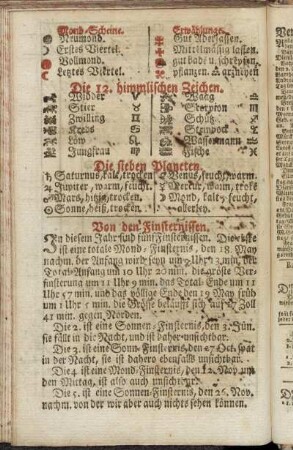 Mond-Scheine. Erwählunge.
Neumond. Gut Aderlassen.
Erstes Viertel. Mittelmässig lassen.
Vollmond. gut bade u. schrepfen.
Letztes Viertel. pflantzen. arzneyen
Die 12. himmlischen Zeichen.
Widder ♈ Waag ♎
Stier ♉ Scorpion ♏
Zwilling ♊ Schütz ♐
Krebs ♋ Steinbock ♑
Löw ♌ Wassermann ♒
Jungfrau ♍ Fische ♓
Die sieben Planeten.
♄ Saturnus, kalt, trocken ♀ Venus, feucht, warm.
♃ Jupiter, warm, feucht. ☿ Merkur, warm, trok
♂ Mars, hitzig, trocken. Mond, kalt, feucht,
☉ Sonne, heiß, trocken. allerley.
Von den Finsternissen.
In diesem Jahr sind fünf Finsternissen. Die erste
ist eine totale Mond-Finsternis, den 18. May
nachm. der Anfang wird seyn um 9 Uhr 3 min. der
Total-Anfang um 10 Uhr 20 min. die größte Ver-
finsterung um 11 Uhr 9 min. das Total-Ende um 11
Uhr 57 min. und das völlige Ende den 19 May früh
um 1 Uhr min. die Größe belauft sich auf Zoll
41 min. gegen Norden.
Die 2. ist eine Sonnen-Finsternis, den 3. Jun.
sie fällt in die Nacht, und ist daher unsichtbar.
Die 3. ist eine Sonn-Finsternis, den 27. Oct. spät
in der Nacht, sie ist dahero ebenfalls unsichtbar.
Die 4. ist eine Mond-Finsternis, den 12. Nov. um
den Mittag, ist also auch unsichtbar.
Die 5. ist eine Sonnen-Finsternis, den 26. Nov.
nachm. von der wir aber auch nichts sehen können.